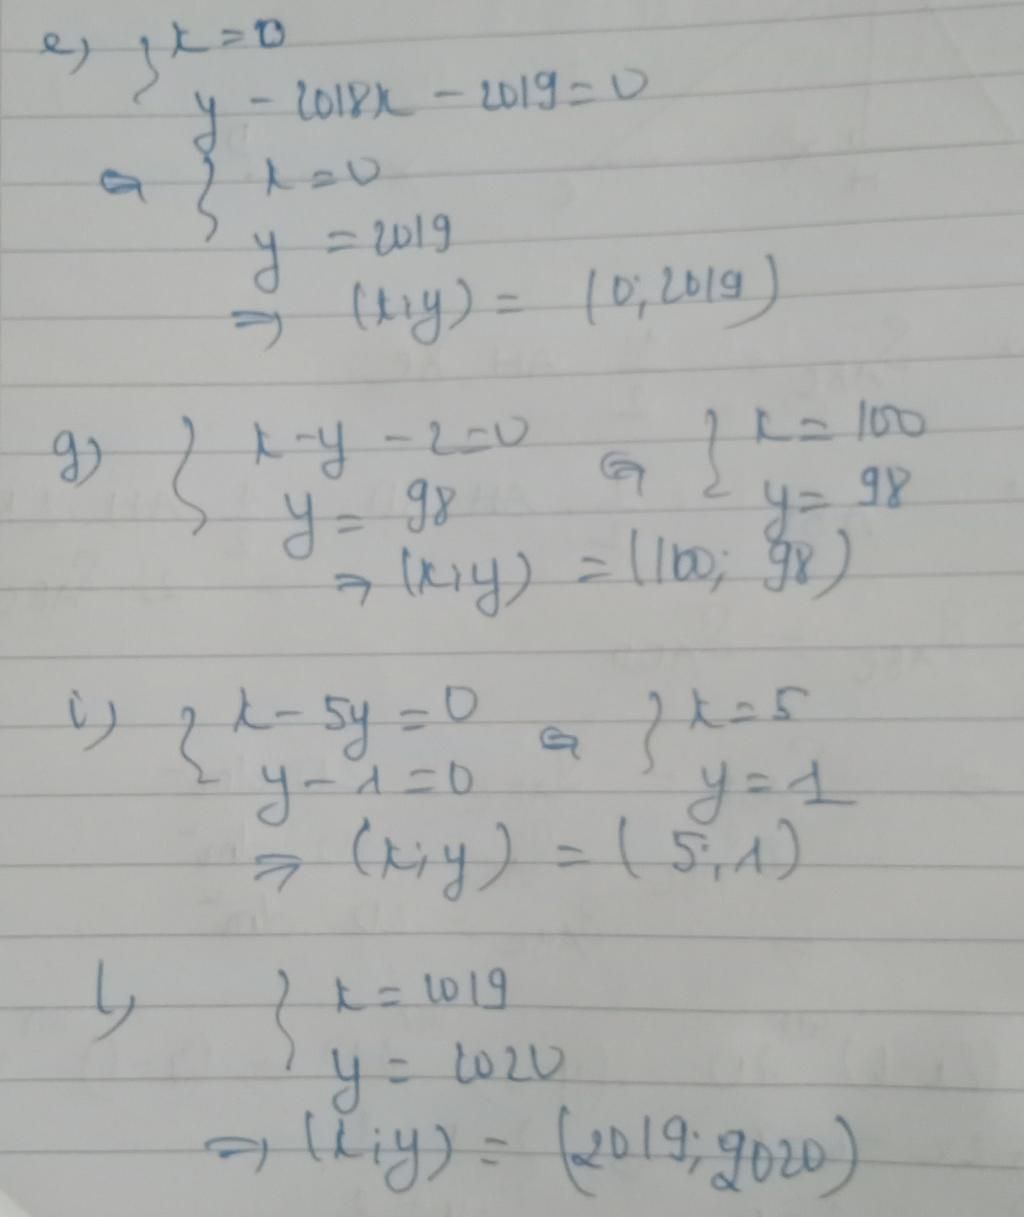 e) { x = 0
y - 2018x - 2019 = 0
⇔ { x = 0
y = 2019
⇒ (x; y) = (0; 2019)
g) { x - y - 2 = 0 ⇔ { x = 100
y = 98 y = 98
⇒ (x; y) = (100; 98)
i) { x - 5y = 0 ⇔ { x = 5
y - 1 = 0 y = 1
⇒ (x; y) = (5; 1)
l) { x = 2019
y = 2020
⇒ (x; y) = (2019; 2020)